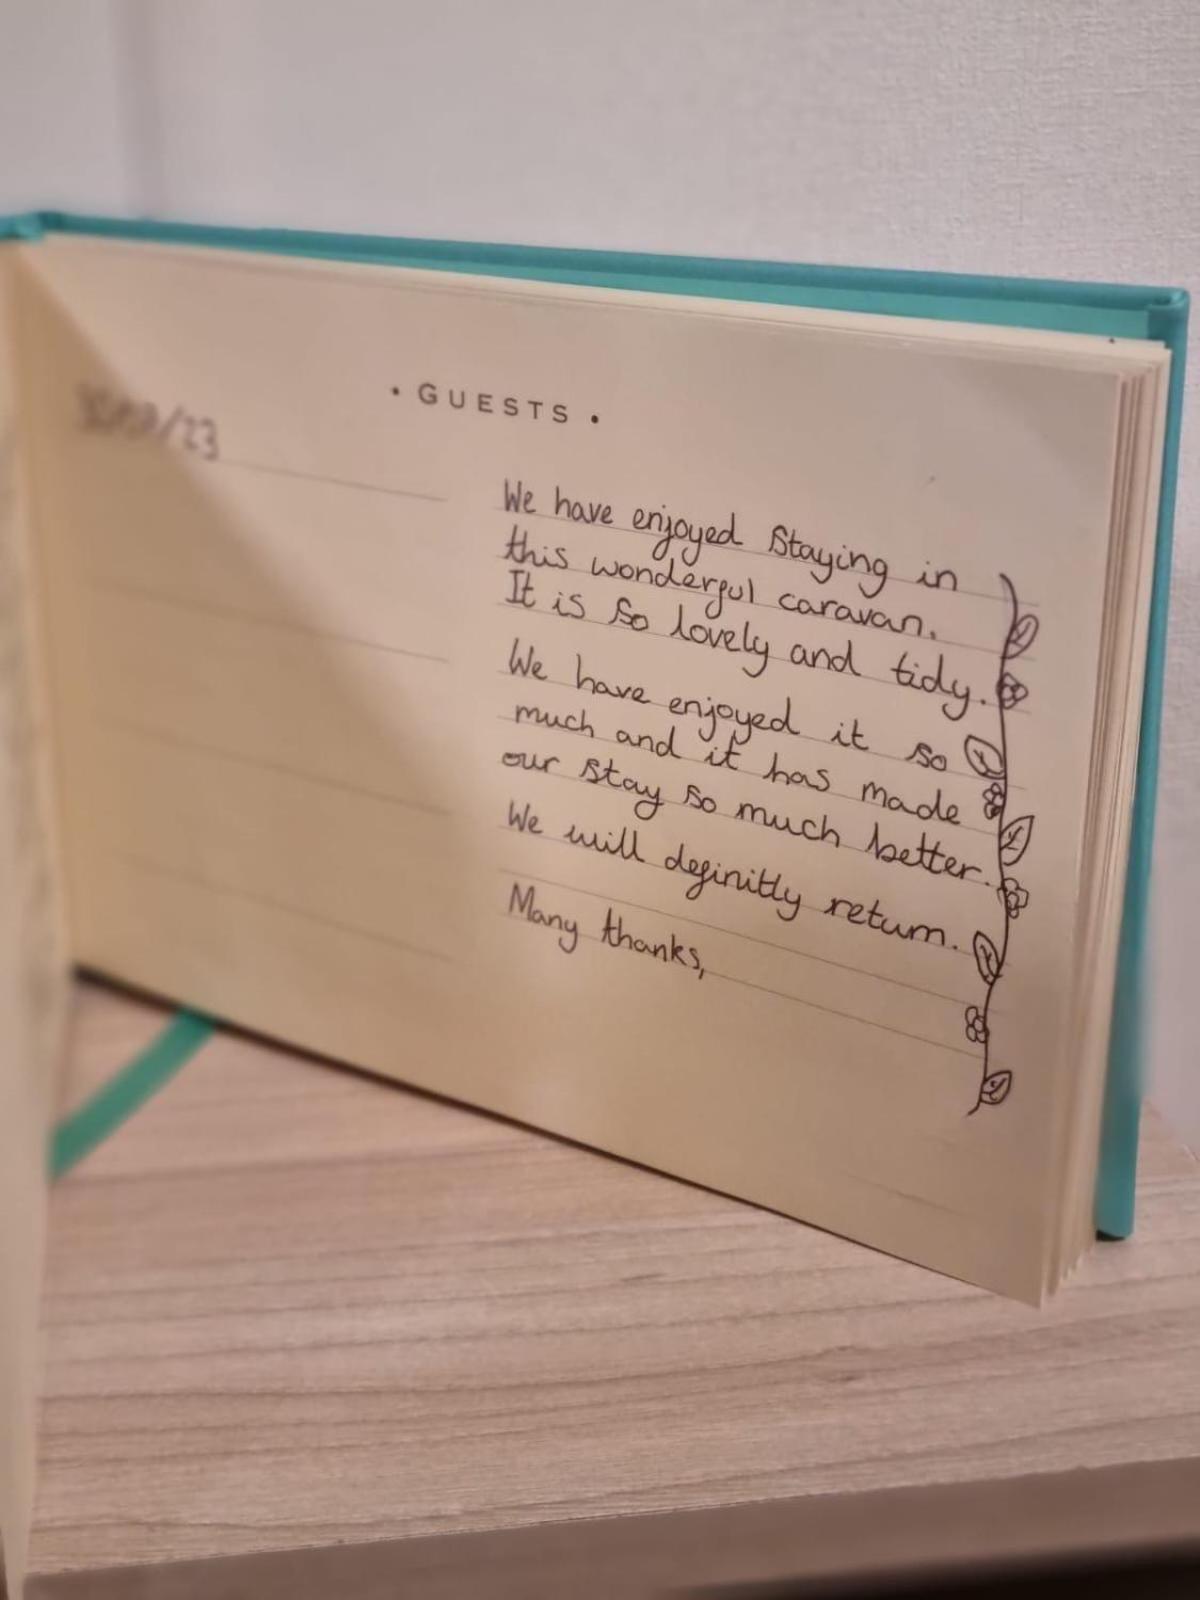 • GUESTS •
/23
We have enjoyed Staying in
this wonderful caravan.
It is so lovely and tidy.
We have enjoyed it so
much and it has made
our stay so much better.
We will definitly return.
Many thanks,